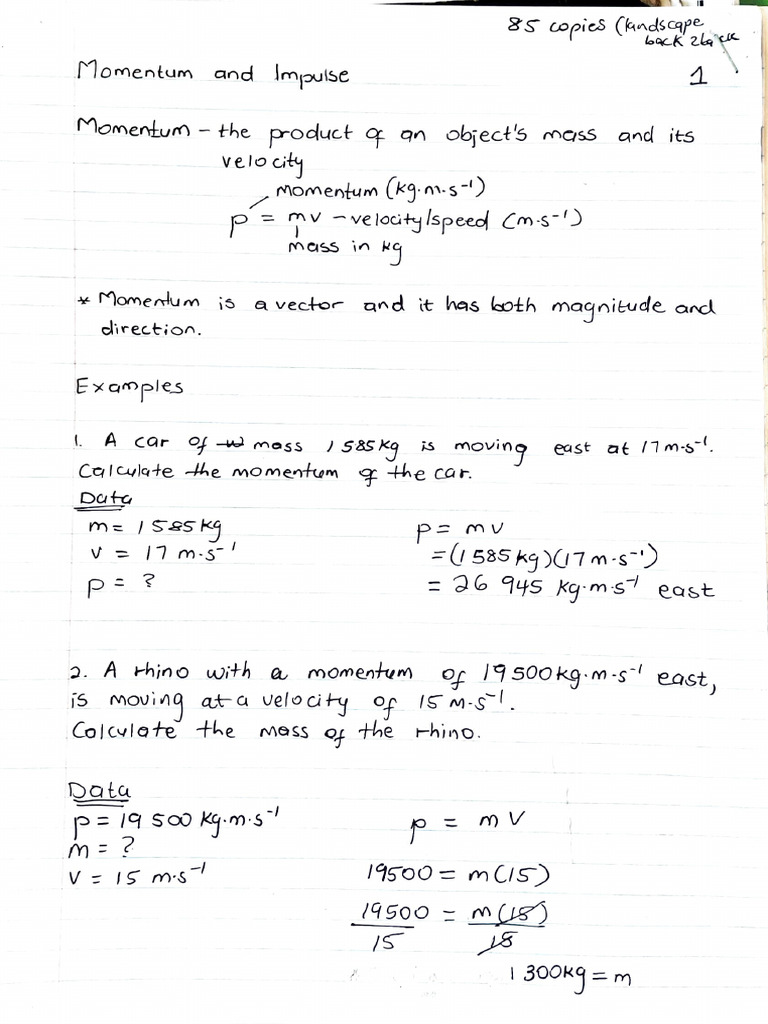 85 copies (landscape
back 2back
Momentum and Impulse
1
Momentum – the product of an object's mass and its
velocity
momentum (kg·m·s⁻¹)
p = mv – velocity/speed (m·s⁻¹)
mass in kg
* Momentum is a vector and it has both magnitude and
direction.
Examples
1. A car of mass 1585kg is moving east at 17m·s⁻¹.
Calculate the momentum of the car.
Data
m = 1585kg
v = 17 m·s⁻¹
p = ?
p = mv
=(1585kg)(17m·s⁻¹)
= 26 945 kg·m·s⁻¹ east
2. A rhino with a momentum of 19500kg·m·s⁻¹ east,
is moving at a velocity of 15 m·s⁻¹.
Calculate the mass of the rhino.
Data
p = 19 500 kg·m·s⁻¹
m = ?
v = 15 m·s⁻¹
p = mv
19500 = m(15)
19500 = m(15)
15 15
1300kg = m